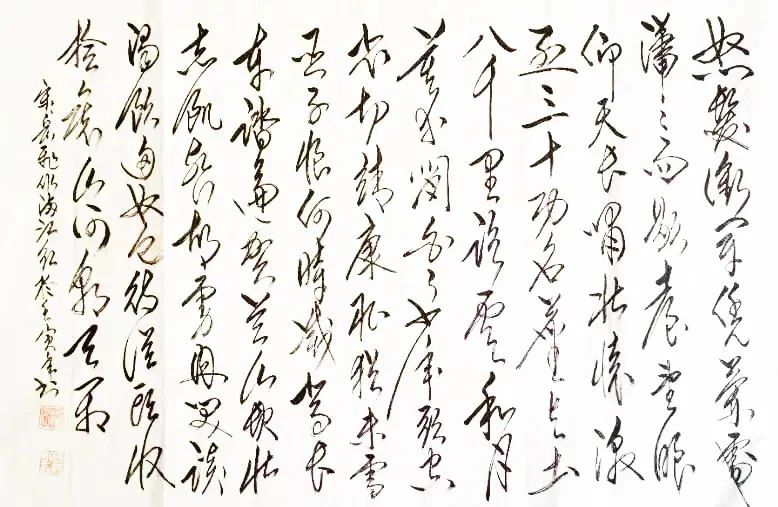 怒髮衝冠憑闌處
瀟瀟雨歇擡望眼
仰天長嘯壯懷激
烈三十功名塵與土
八千里路雲和月
莫等閒白了少年頭空
悲切靖康恥猶未雪
臣子恨何時滅駕長
車踏破賀蘭山缺壯
志飢餐胡虜肉笑談
渴飲匈奴血待從頭收
拾舊山河朝天闕
宋岳飛作滿江紅於壬寅年書